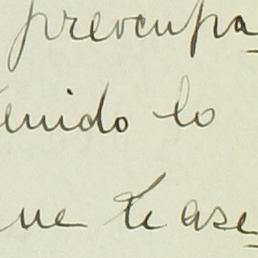 preocupa
enido lo
ue te ase